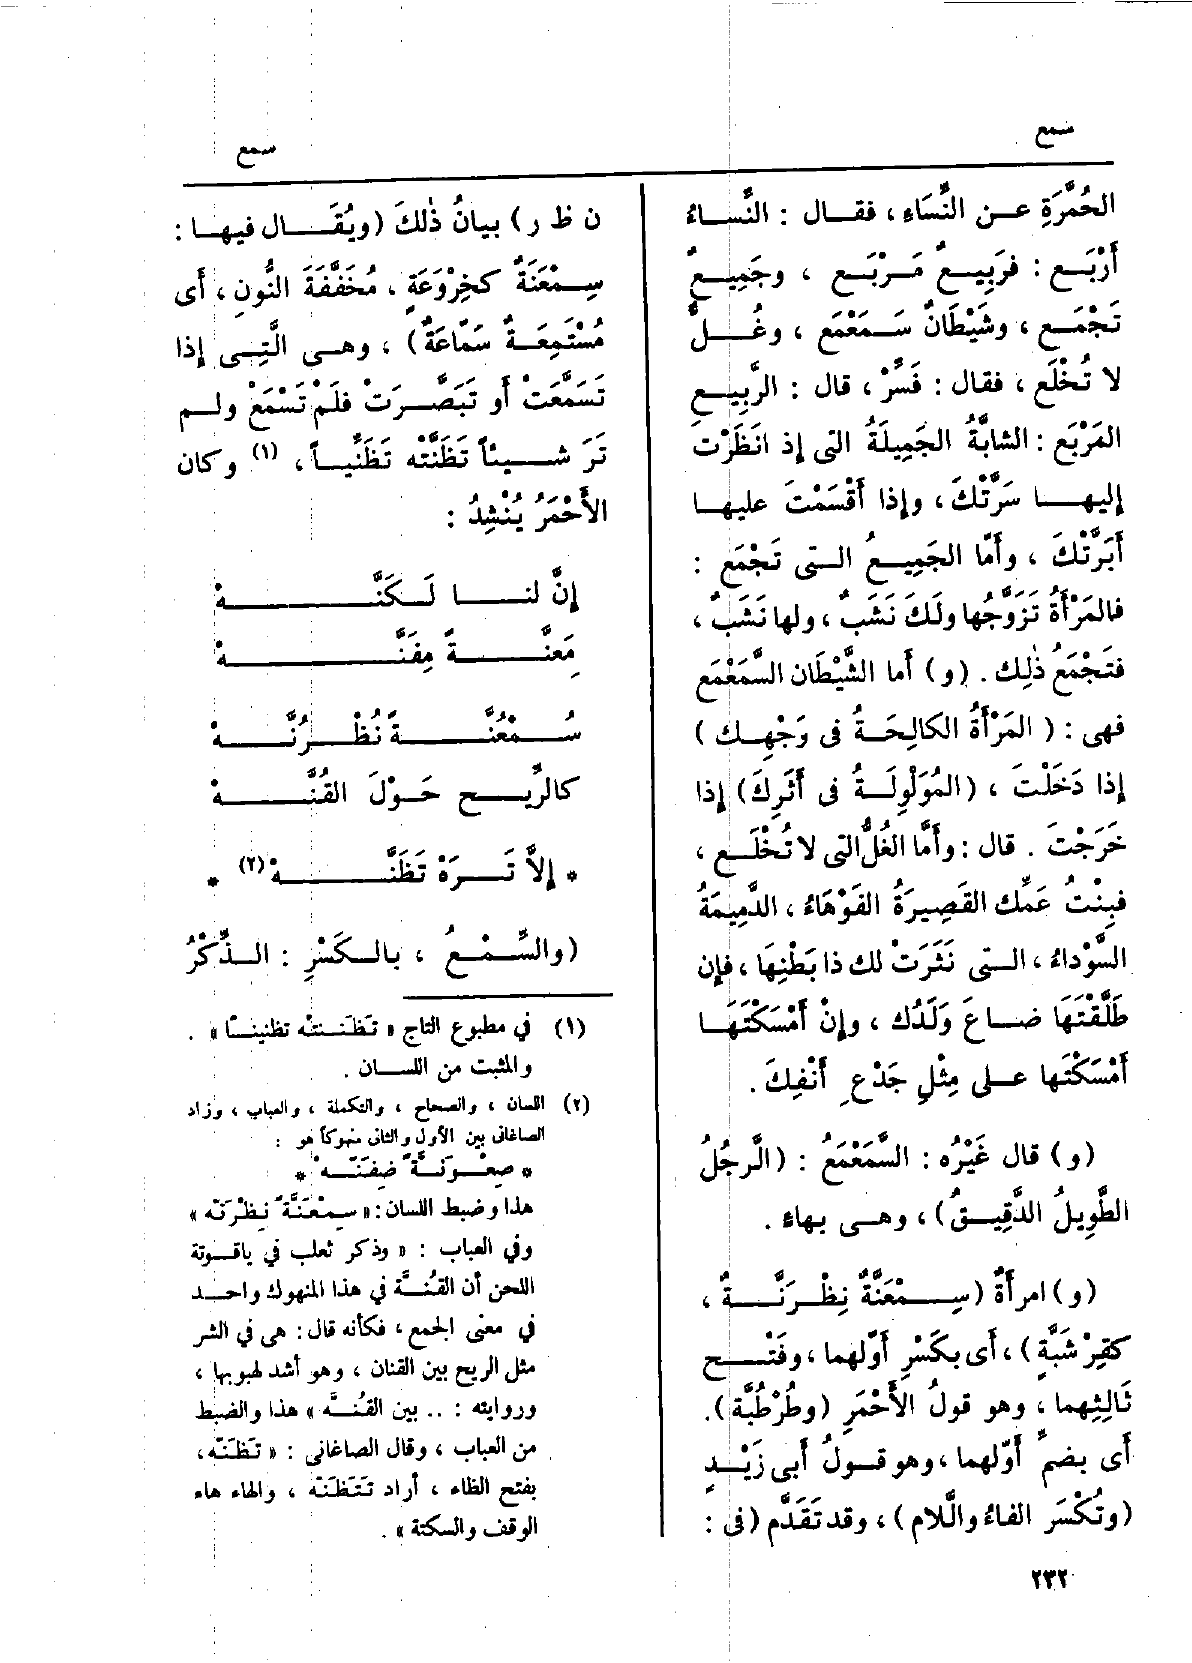 سمع
سمع
الحُمَّرَةِ عن النِّسَاءِ ، فقال : النِّساءُ
أَرْبَع : فرَبِيعٌ مَرْبَع ، وجَمِيعٌ
تَجْمَع ، وشَيْطَانٌ سَمَعْمَع ، وغُلٌّ
لا تُخْلَع ، فقال : فَسِّرْ ، قال : الرَّبِيع
المَرْبَع : الشابَّةُ الجَمِيلَةُ التى إذ انَظَرْتَ
إليها سَرَّتْكَ ، وإذا أَقْسَمْتَ عليها
أَبَرَّتْكَ ، وأَمّا الجَمِيعُ التى تَجْمَع :
فالمَرْأَةُ تَزَوَّجُها ولَكَ نَشَبٌ ، ولها نَشَبٌ ،
فتَجْمَعُ ذٰلِك . (و) أما الشَّيْطَان السَّمَعْمَع
فهى : ( المَرْأَةُ الكالِحَةُ فى وَجْهِك )
إذا دَخَلْتَ ، (المُوَلْوِلَةُ فى أَثَرِكَ) إذا
خَرَجْتَ . قال : وأَمَّا الغُلُّ التى لا تُخْلَع ،
فبِنْتُ عَمِّك القَصِيرَةُ الفَوْهَاءُ ، الدَّمِيمَةُ
السَّوْداءُ ، التى نَثَرَتْ لك ذا بَطْنِهَا ، فإن
طَلَّقْتَهَا ضاعَ وَلَدُك ، وإنْ أَمْسَكْتَهَا
أَمْسَكْتَها على مِثْلِ جَدْعِ أَنْفِكَ .
(و) قال غَيْرُه : السَّمَعْمَعُ : (الرَّجُلُ
الطَّوِيلُ الدَّقِيقُ) ، وهى بهاءِ .
(و) امرأَةٌ (سِمْعَنَّةٌ نِظْرَنَّةٌ ،
كقِرْشَبَّةٍ) ، أَى بكَسْرِ أَوّلهما ، وفَتْح
ثَالِثِهما ، وهو قولُ الأَحْمَرِ (وطُرْطُبَّة).
أَى بضمِّ أَوّلهما ، وهو قولُ أَبى زَيْدٍ
(وتُكْسَر الفاءُ واللَّام) ، وقد تَقَدَّم (فى :
ن ظ ر) بيانُ ذٰلكَ (ويُقَال فيها :
سِمْعَنَةٌ كخِرْوَعَةٍ ، مُخَفَّفَةَ النُّونِ ، أَى
مُسْتَمِعَةٌ سَمّاعَةٌ) ، وهى الَّتِى إذا
تَسَمَّعَتْ أَو تَبَصَّرَتْ فلَمْ تَسْمَعْ ولم
تَرَ شيئاً تَظَنَّتْه تَظَنِّياً ، (١) وكان
الأَحْمَرُ يُنْشِدُ :
إنَّ لنا لَكَنَّهْ
مِعَنَّةً مِفَنَّهْ
سُمْعُنَّةً نُظْرُنَّهْ
كالرِّيح حَوْلَ القُنَّهْ
* إلاَّ تَرَهْ تَظَنَّهْ (٢) *
(والسِّمْعُ ، بالكَسْرِ : الذِّكْرُ
(١) في مطبوع التاج « تَظَنته تظنيناً » .
والمثبت من اللسان .
(٢) اللسان ، والصحاح ، والتكملة ، والعباب ، وزاد
الصاغانى بين الأول والثانى منهوكاً هو :
* صِعْوَنَّةً ضِفَنّهْ *
هذا وضبط اللسان : « سِمْعَنَّةً نِظْرَنّه »
وفي العباب : « وذكر ثعلب في ياقوتة
اللحن أن القُنَّة في هذا المنهوك واحد
في معنى الجمع ، فكأنه قال : هى في الشر
مثل الريح بين القنان ، وهو أشد لهبوبها ،
وروايته : .. بين القُنَّه » هذا والضبط
من العباب ، وقال الصاغانى : « تَظَنّه ،
بفتح الظاء ، أراد تَتَظَنّهْ ، والهاء هاء
الوقف والسكتة » .
٢٣٢